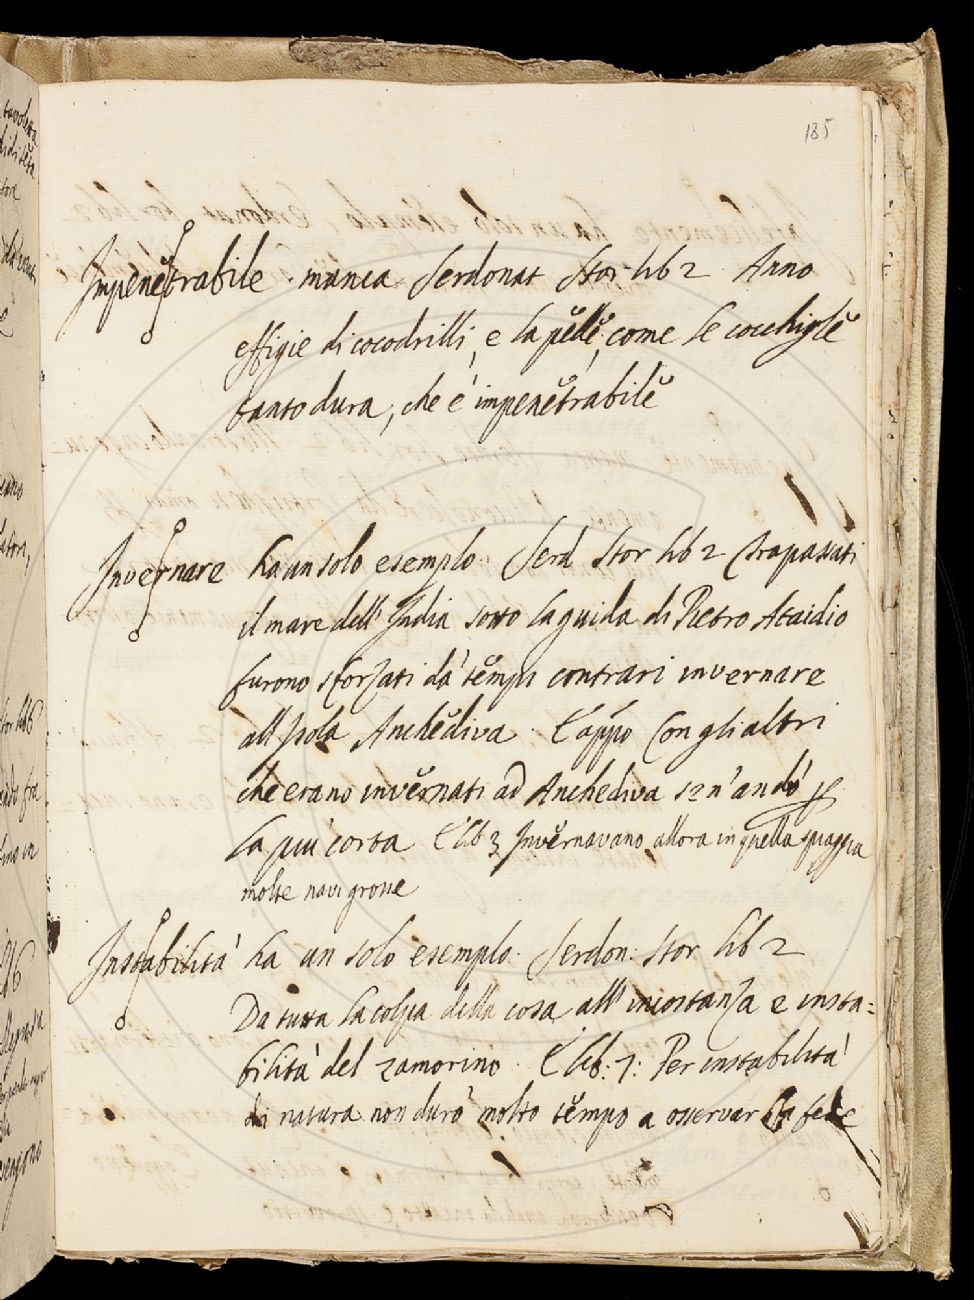 185
Impenetrabile · manca Serdonat Stor lib 2 Anno
effigie di cocodrilli, e la pelle, come le cocchiglie
tanto dura, che è impenetrabile
Invernare ha un solo esemplo· Serd Stor lib 2 Trapassati
il mare dell' India sotto la guida di Pietro Ataidio
furono sforzati da' tempi contrari invernare
all Isola Anchediva · E appo Con gli altri
che erano invernati ad Anchediva se n'andò p
la più corta E lib 3 Invernavano allora in quella spiaggia
molte navi grosse
Instabilità ha un solo esemplo· Serdon: Stor lib 2
Da tutta la colpa della cosa all' incostanza e insta=
bilità del zamorino · E lib: 7: Per instabilità
di natura non durò molto tempo a osservar la fede